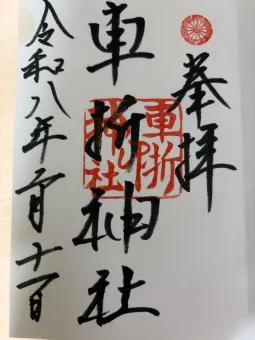 奉拝
車折神社
車折神社
令和八年二月十一日